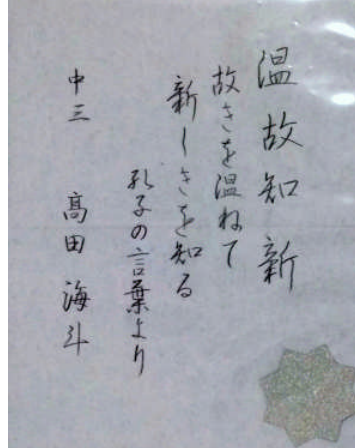 温故知新
故きを温ねて
新しきを知る
孔子の言葉より
中三 髙田海斗